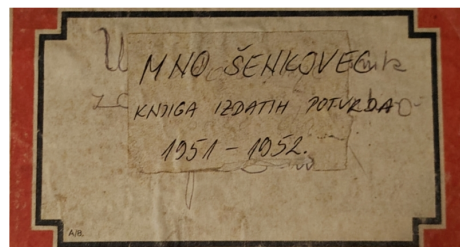 MNO ŠENKOVEC
KNJIGA IZDATIH POTVRDA
1951 – 1952.
A/8.